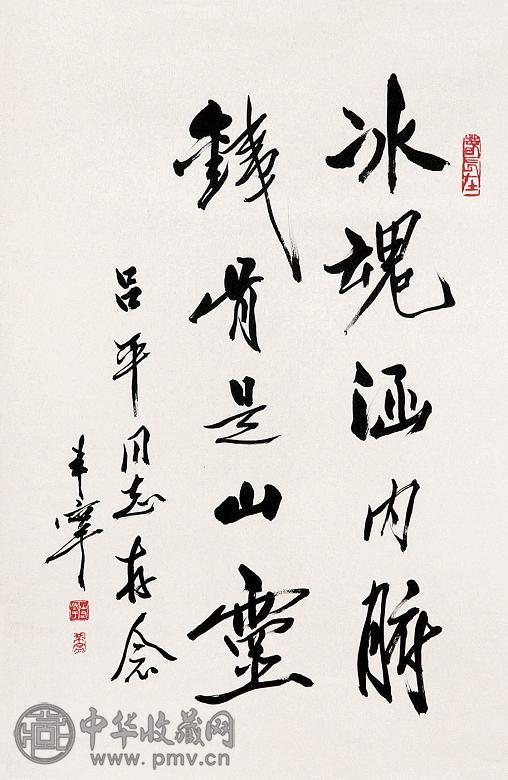 冰魂涵内腑
銕骨是山靈
吕平同志存念
中华收藏网
www.pmv.cn